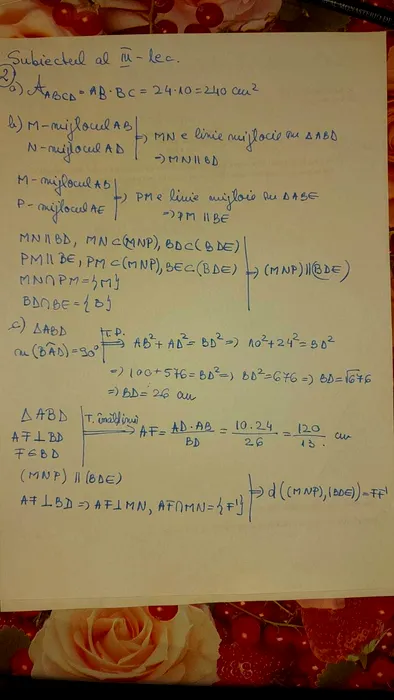 Subiectul al III-lea.
2
a) A_ABCD = AB·BC = 24·10 = 240 cm²
b) M-mijlocul AB
N-mijlocul AD
⇒ MN e linie mijlocie în ΔABD
⇒ MN ∥ BD
M-mijlocul AB
P-mijlocul AE
⇒ PM e linie mijlocie în ΔABE
⇒ PM ∥ BE
MN ∥ BD, MN⊂(MNP), BD⊂(BDE)
PM ∥ BE, PM⊂(MNP), BE⊂(BDE)
MN∩PM={M}
BD∩BE={B}
⇒ (MNP) ∥ (BDE)
c) ΔABD
m(BAD)=90°
T.P. ⇒ AB²+AD²=BD² ⇒ 10²+24²=BD²
⇒ 100+576=BD² ⇒ BD²=676 ⇒ BD=√676
⇒ BD=26 cm
ΔABD
AF⊥BD
F∈BD
T. înălțimii ⇒ AF = AD·AB/BD = 10·24/26 = 120/13 cm
(MNP) ∥ (BDE)
AF⊥BD ⇒ AF⊥MN, AF∩MN={F'}
⇒ d((MNP),(BDE))=FF'